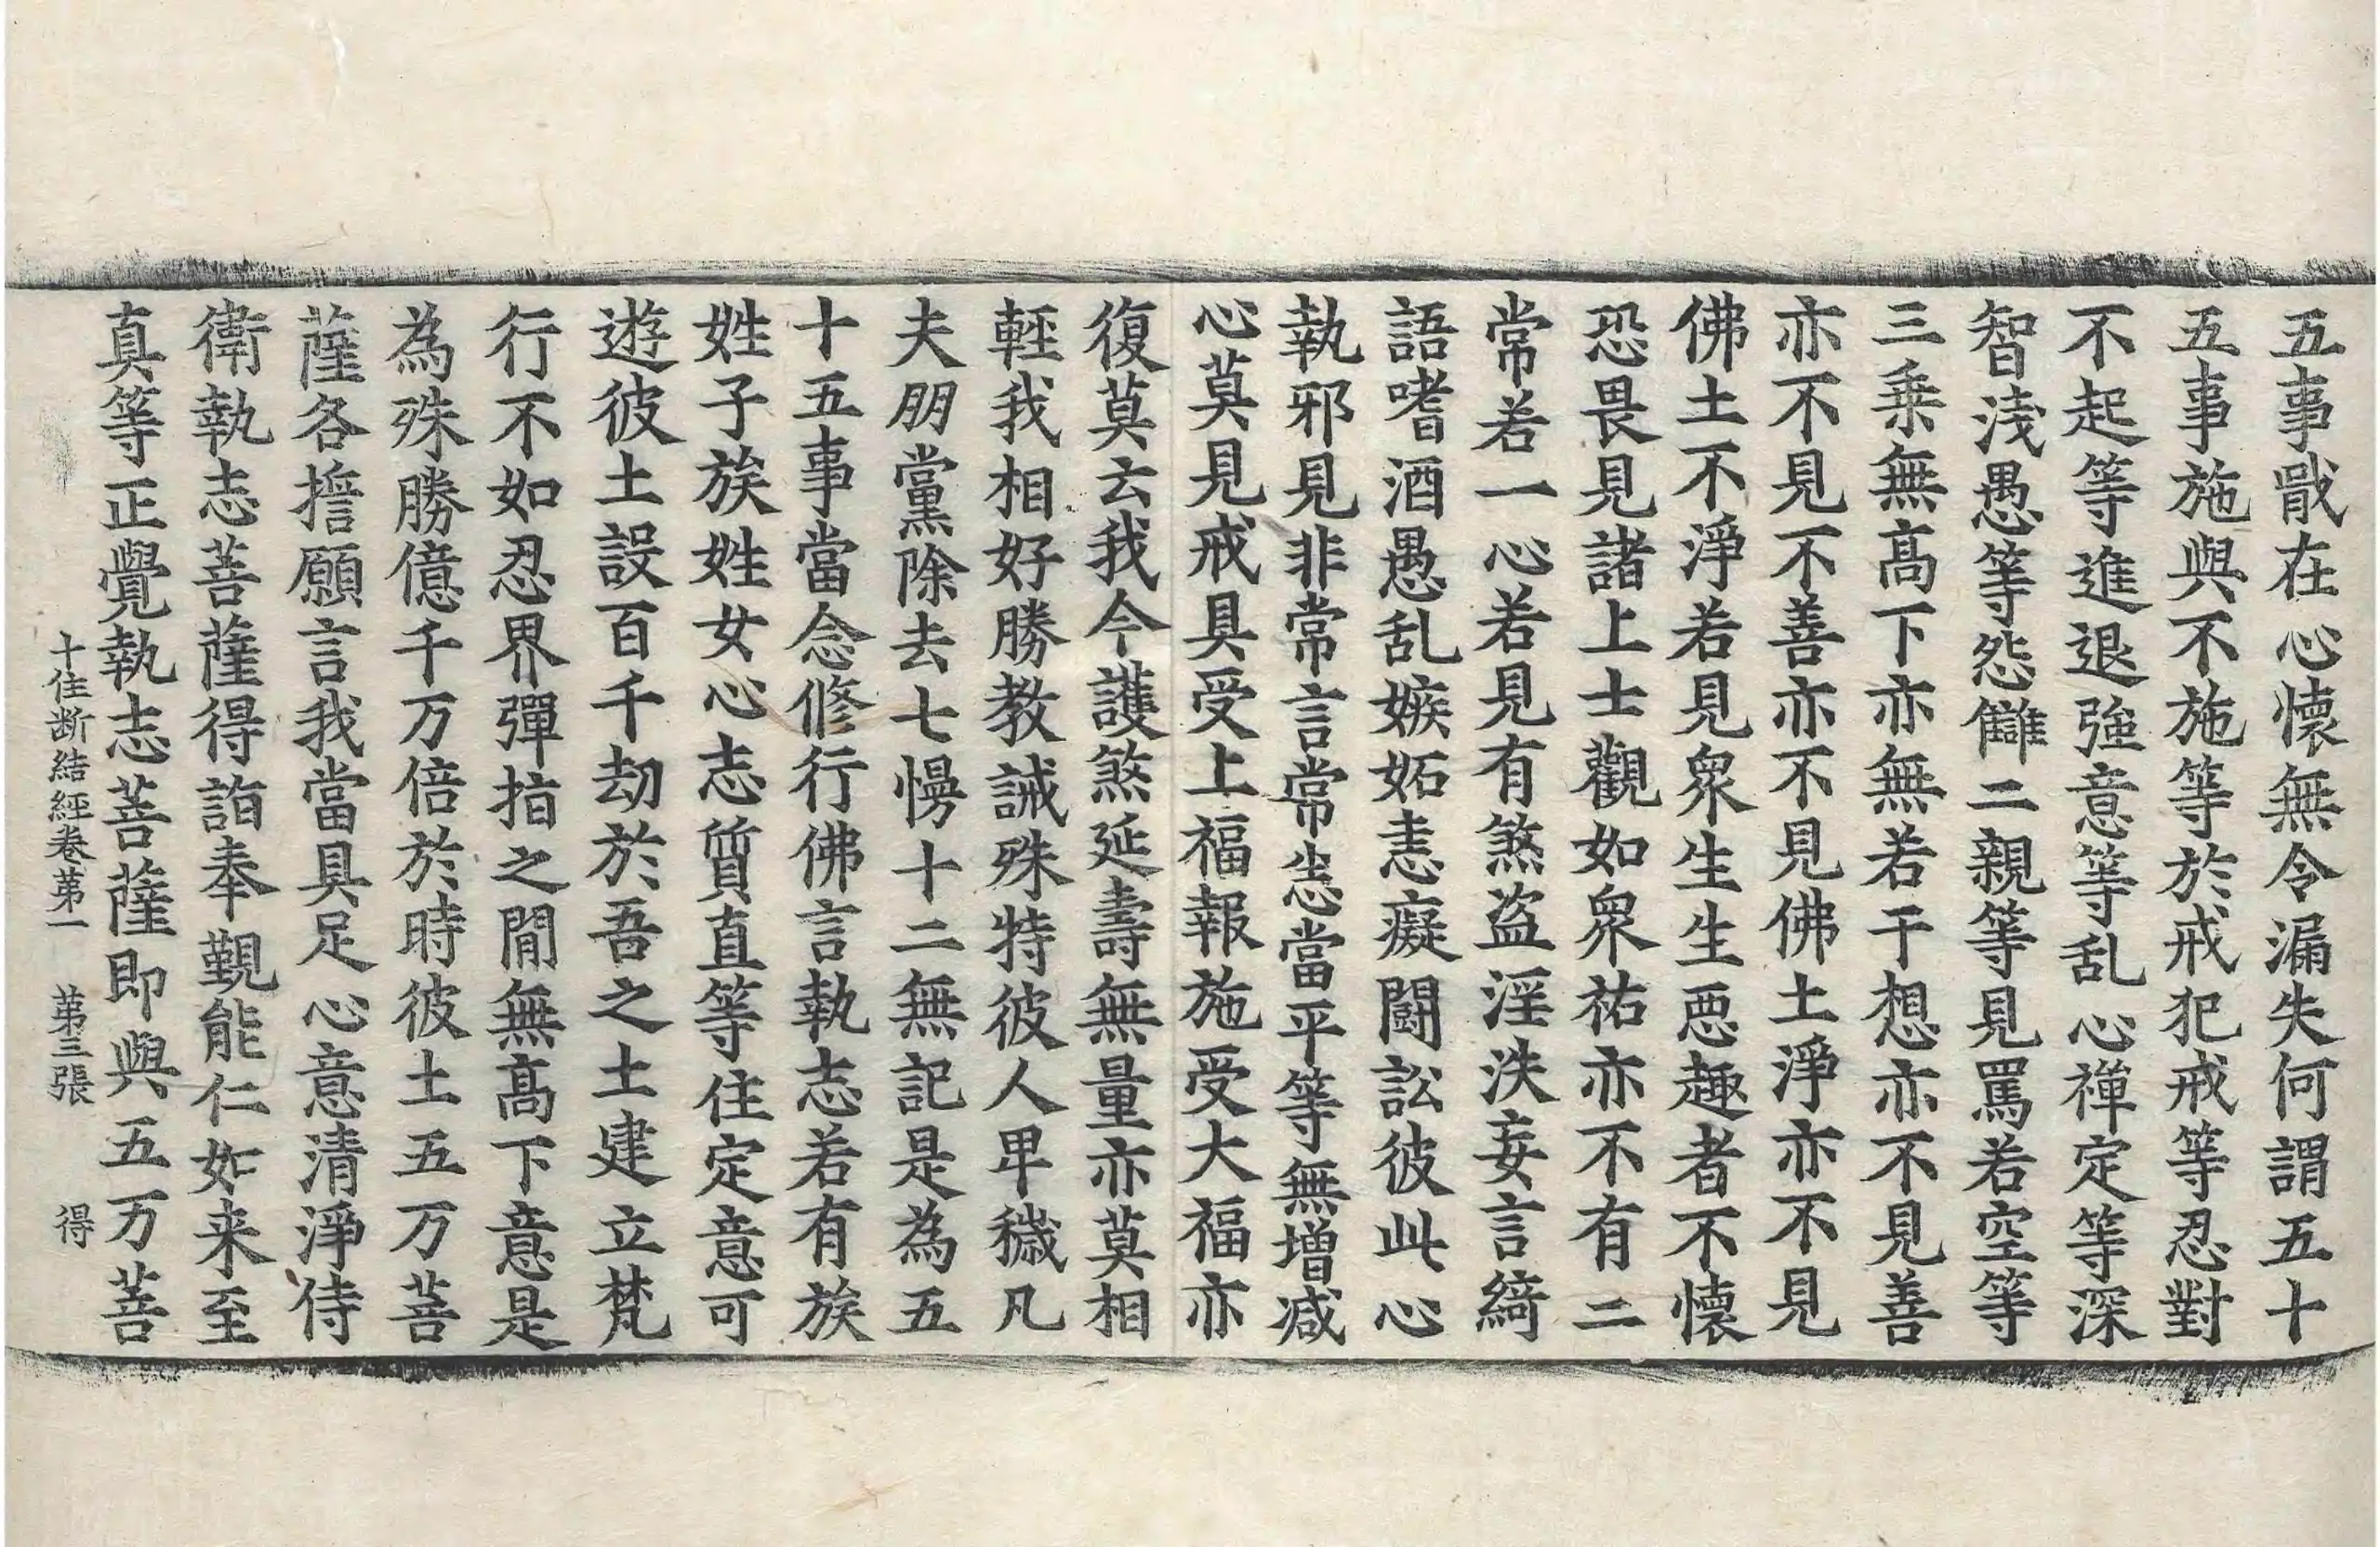 五事戢在心懷無令漏失何謂五十
五事施與不施等於戒犯戒等忍對
不起等進退強意等乱心禪定等深
智淺愚等怨讎二親等見罵若空等
三乗無髙下亦無若干想亦不見善
亦不見不善亦不見佛土淨亦不見
佛土不淨若見衆生生惡趣者不懷
恐畏見諸上士觀如衆祐亦不有二
常若一心若見有煞盗淫泆妄言綺
語嗜酒愚乱嫉妬恚癡鬪訟彼此心
執邪見非常言常恚當平等無增减
心莫見戒具受上福報施受大福亦
復莫云我今護煞延壽無量亦莫相
輕我相好勝教誡殊特彼人卑穢凡
夫朋黨除去七慢十二無記是為五
十五事當念修行佛言執志若有族
姓子族姓女心志質直等住定意可
遊彼土設百千劫於吾之土建立梵
行不如忍界彈指之閒無髙下意是
為殊勝億千万倍於時彼土五万菩
薩各擔願言我當具足心意清淨侍
衛執志菩薩得詣奉覲能仁如来至
真等正覺執志菩薩即與五万菩
十住断結經卷第一 第三張 得